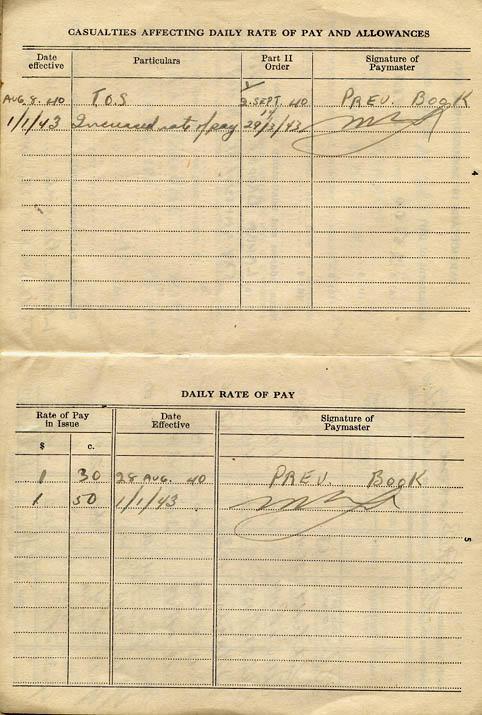 CASUALTIES AFFECTING DAILY RATE OF PAY AND ALLOWANCES
Date effective Particulars Part II Order Signature of Paymaster
AUG. 8. 40 T.O.S 2 SEPT. 40 PREV. BOOK
1/1/43 Increased rate of pay
4
DAILY RATE OF PAY
Rate of Pay in Issue Date Effective Signature of Paymaster
$ c.
1 30 28 AUG. 40 PREV. BOOK
1 50 1/1/43
5